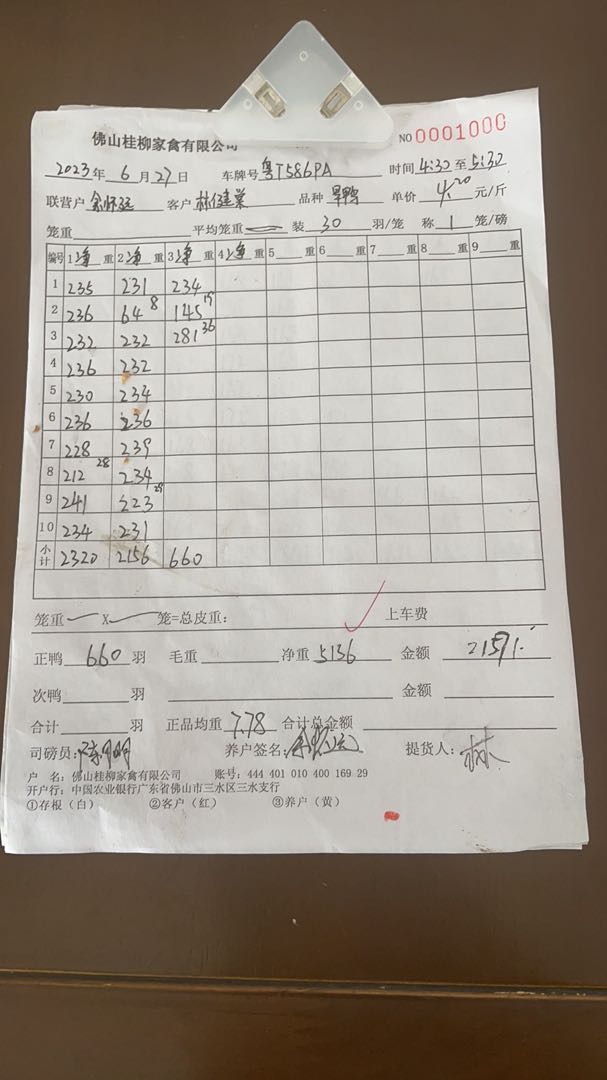 佛山桂柳家禽有限公司
NO 0001000
2023年 6 月 27 日 车牌号 粤T586PA 时间 4:30 至 5:30
联营户 余怀远 客户 林 品种 旱鸭 单价 4.20 元/斤
笼重 平均笼重 装 30 羽/笼 称 1 笼/磅
编号 1 净 重 2 净 重 3 净 重 4 净 重 5 重 6 重 7 重 8 重 9 重
1 235 231 234
2 236 64 8 145 19
3 232 232 281 36
4 236 232
5 230 234
6 236 236
7 228 239
8 212 28 234
9 241 223 29
10 234 231
小计 2320 2156 660
笼重 X 笼=总皮重: 上车费
正鸭 660 羽 毛重 净重 5136 金额 21571.
次鸭 羽 金额
合计 羽 正品均重 7.78 合计总金额
司磅员: 陈明明 养户签名: 余怀远 提货人: 林
户 名: 佛山桂柳家禽有限公司 账号: 444 401 010 400 169 29
开户行: 中国农业银行广东省佛山市三水区三水支行
①存根（白） ②客户（红） ③养户（黄）